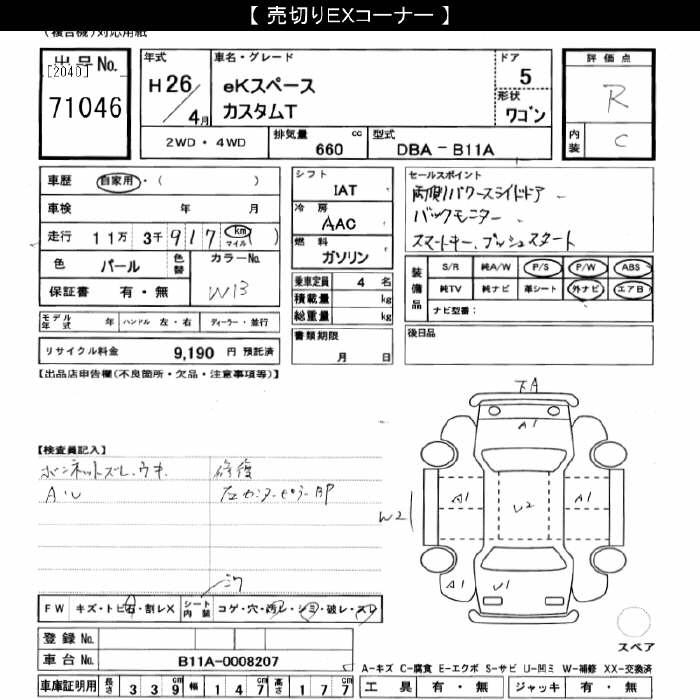 【 売切りEXコーナー 】
(複合機)対応用紙
出品No.
[2040]
71046
年式
H26/4月
車名・グレード
eKスペース
カスタムT
ドア
5
形状
ワゴン
2WD・4WD
排気量 660 cc
型式 DBA-B11A
評価点
R
内装
C
車歴 自家用・( )
車検 年 月
走行 11万 3千917 km マイル ( )
色 パール
色替
カラーNo.
W13
保証書 有・無
モデル年式 年 ハンドル 左・右 ディーラー・並行
リサイクル料金 9,190 円 預託済
シフト
IAT
冷房
AAC
燃料
ガソリン
乗車定員 4 名
積載量 kg
総重量 kg
書類期限
月 日
セールスポイント
両側パワースライドドア
バックモニター
スマートキー、プッシュスタート
装備品
S/R 純A/W P/S P/W ABS
純TV 純ナビ 革シート 外ナビ エアB
ナビ型番:
後日品
【出品店申告欄(不良箇所・欠品・注意事項等)】
【検査員記入】
ボンネットズレ、ウキ
A・U
修復
左センターピラーAP
下A
A1
A1
U2
A1
W2
A1
U1
スペア
FW キズ・トビ石・割レX
シート内装
コゲ・穴・汚レ・シミ・破レ・スレ
登録No.
車台No. B11A-0008207
車庫証明用 長さ 339cm 幅 147cm 高さ 177cm
A-キズ C-腐食 E-エクボ S-サビ U-凹ミ W-補修 XX-交換済
工具 有・無 ジャッキ 有・無